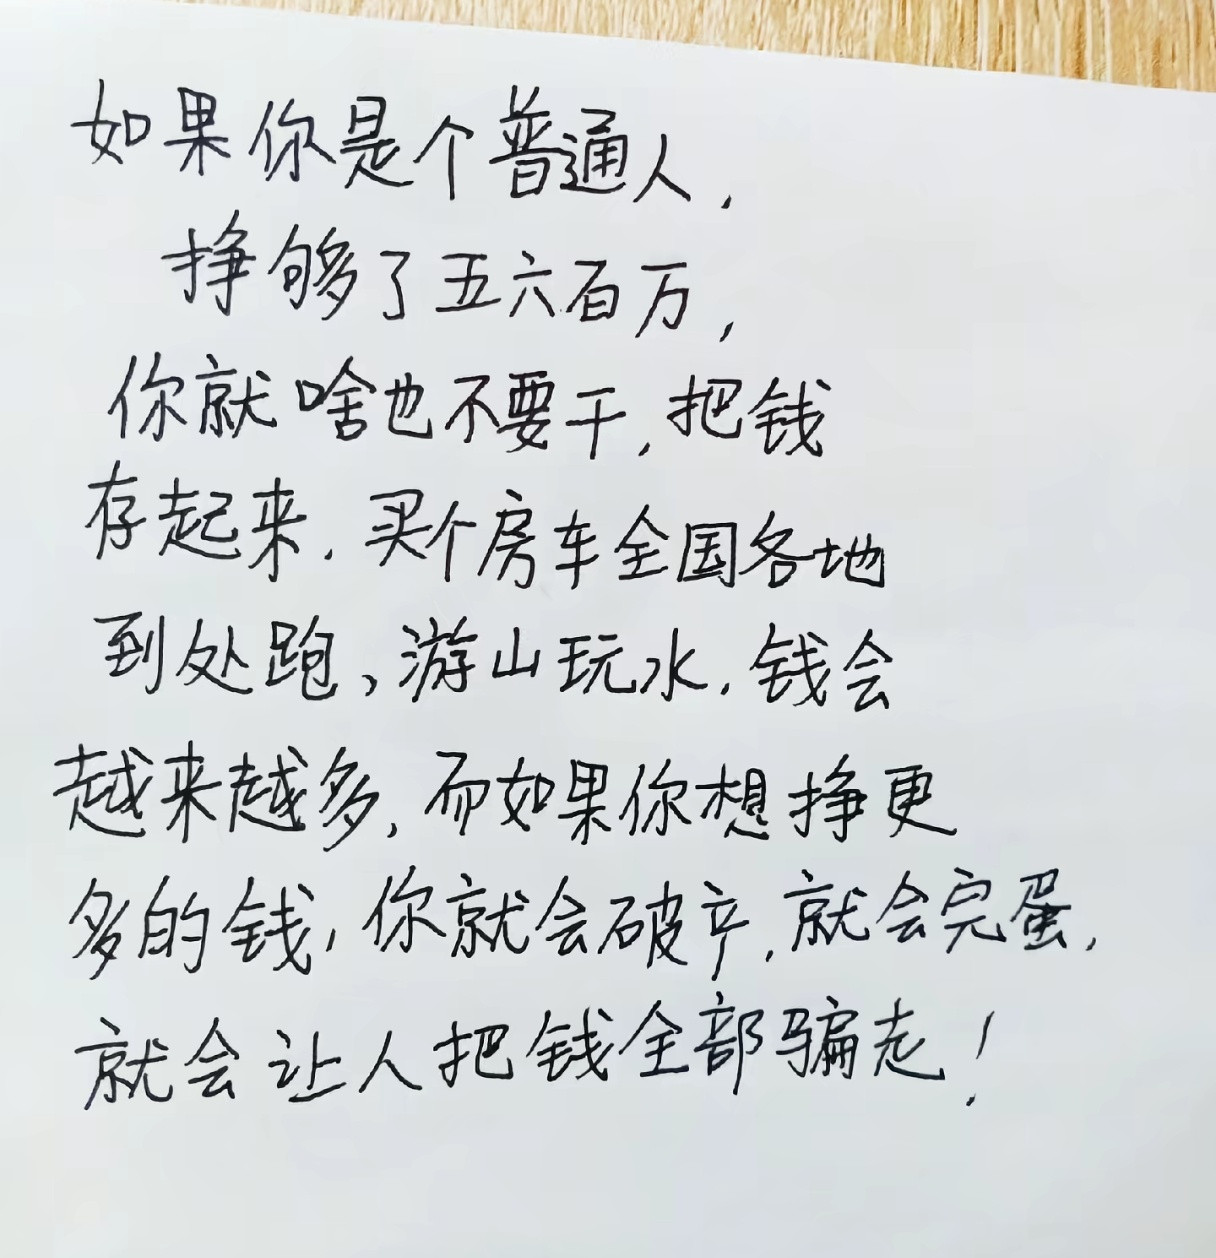 如果你是个普通人,
挣够了五六百万,
你就啥也不要干,把钱
存起来,买个房车全国各地
到处跑、游山玩水,钱会
越来越多,而如果你想挣更
多的钱,你就会破产,就会完蛋,
就会让人把钱全部骗走!